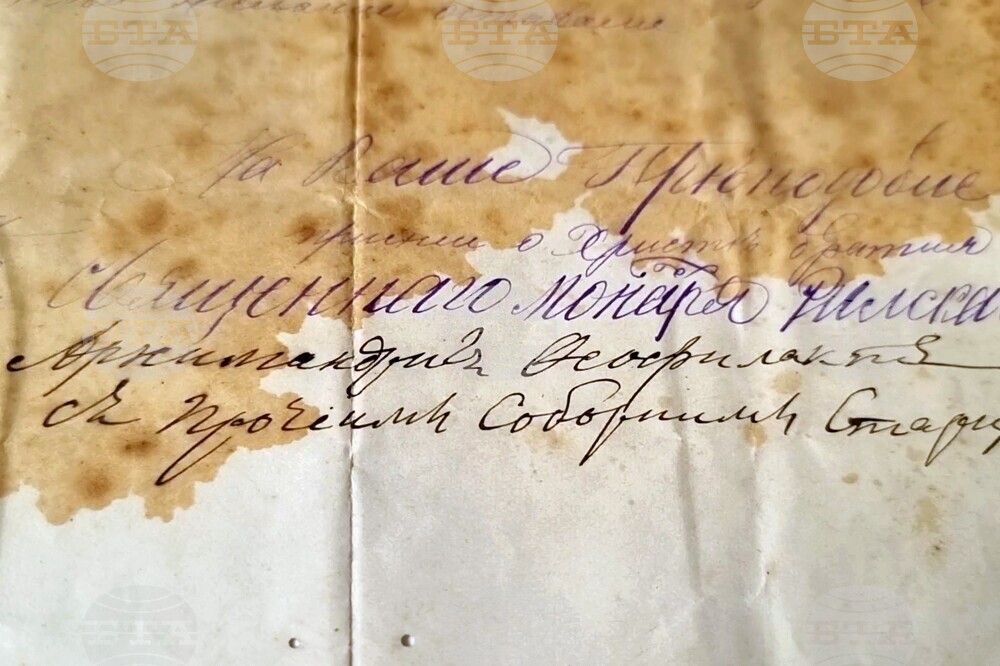 БТА БТА БТА
На Ваше Прѣподобие
присни о Христѣ братия
Священнаго монастѣря Рилска
Архимандрит Ѳеофилактъ
съ прочіими соборними Стар
БТА БТА